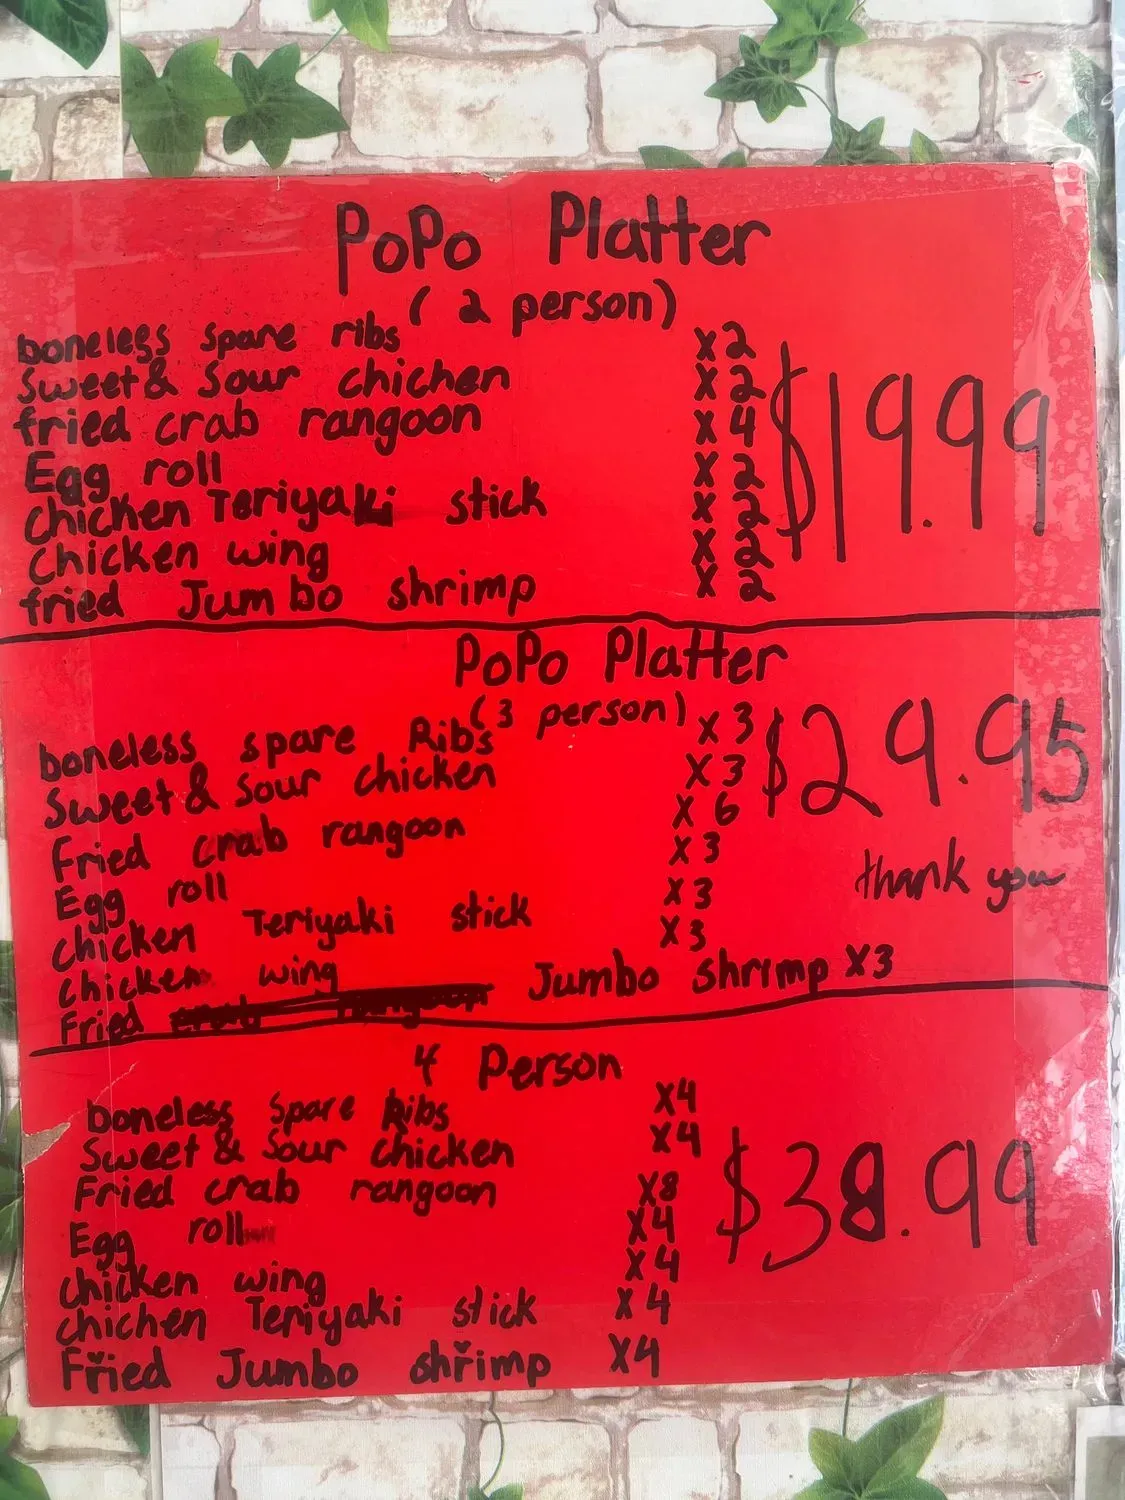 PoPo Platter
(2 person)
boneless spare ribs x2
Sweet & Sour chicken x2
fried crab rangoon x4
Egg roll x2
chicken Teriyaki stick x2
chicken wing x2
fried Jumbo shrimp x2
$19.99
PoPo Platter
(3 person)
boneless spare Ribs x3
Sweet & Sour chicken x3
Fried crab rangoon x6
Egg roll x3
chicken Teriyaki stick x3
chicken wing x3
Fried crab rangoon Jumbo shrimp x3
$29.95
thank you
4 Person
boneless Spare Ribs x4
Sweet & Sour chicken x4
Fried crab rangoon x8
Egg roll x4
chicken wing x4
chicken Teriyaki stick x4
Fried Jumbo shrimp x4
$38.99